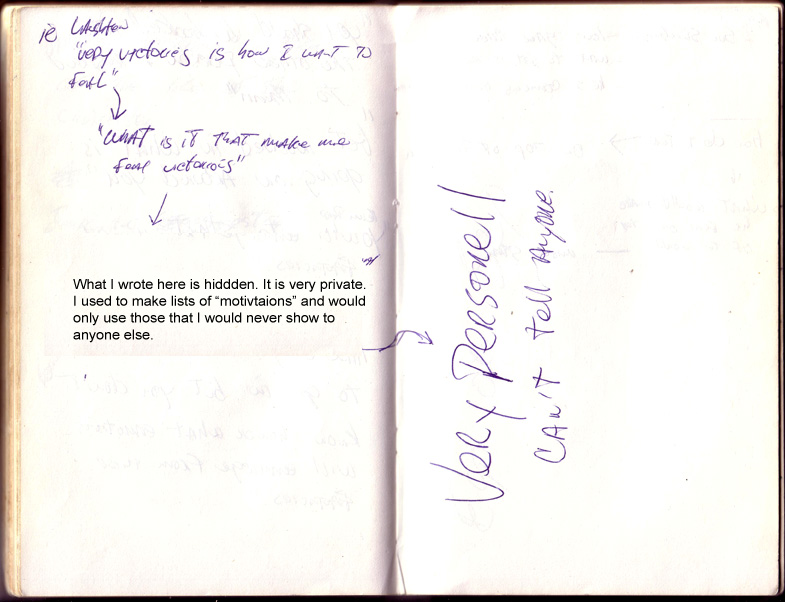 ie
"very victories is how I want to
feal"
"WHAT is it that make me
feal victories"
What I wrote here is hiddden. It is very private.
I used to make lists of “motivtaions” and would
only use those that I would never show to
anyone else.
Very Personell
CAn't tell Anyone.